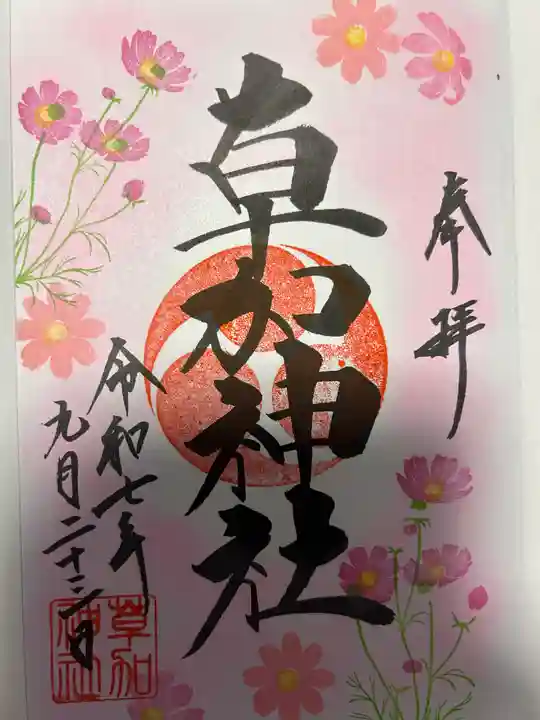 奉拝
草加神社
令和七年
九月二十三日
草加
神社